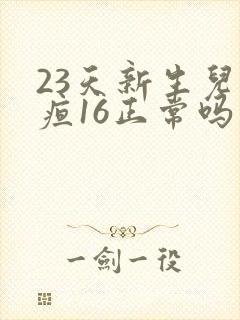 23天新生兒
疸16正常吗
一劍一役